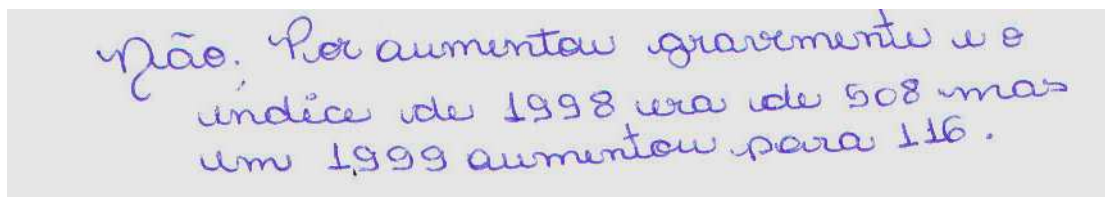 Não. Por aumentou gravemente e o
índice de 1998 era de 508 mas
em 1999 aumentou para 116.